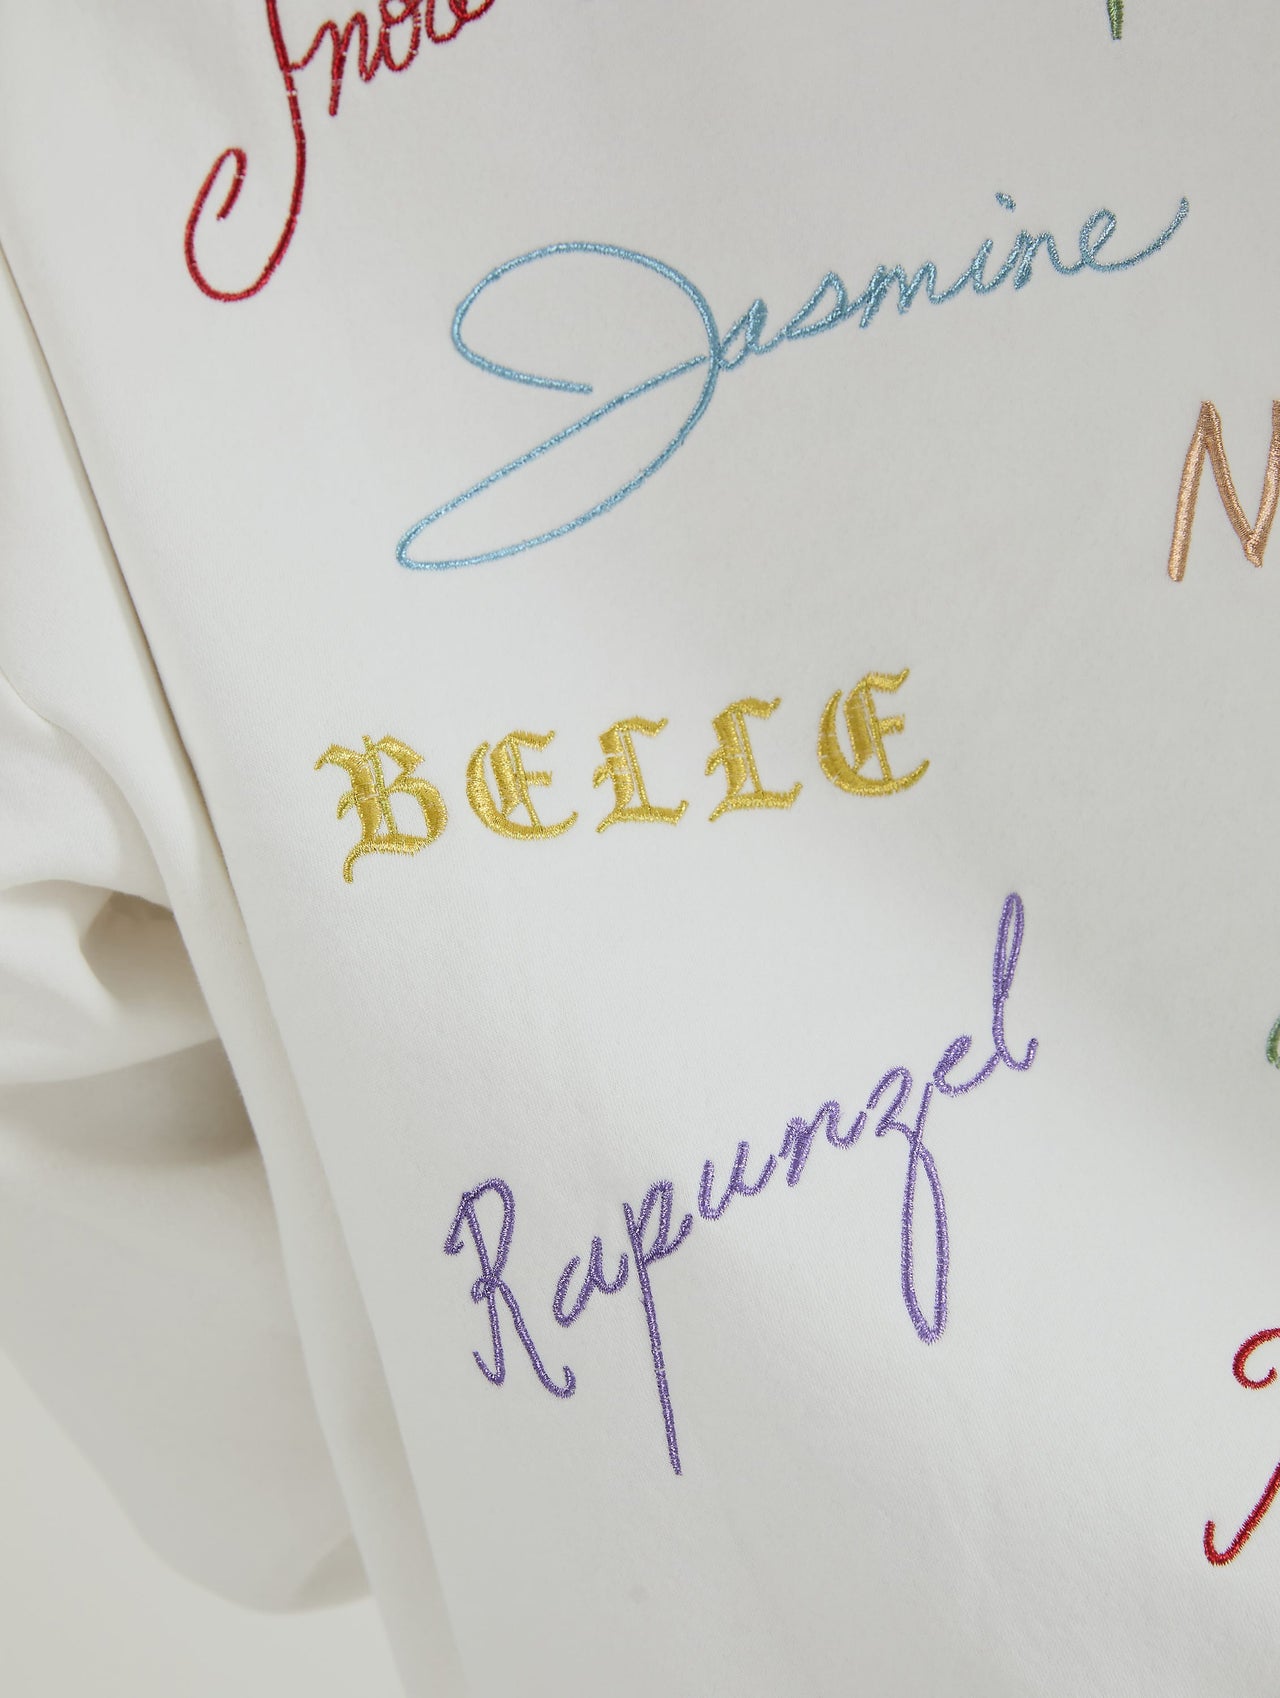 Snow
Jasmine
BELLE
Rapunzel